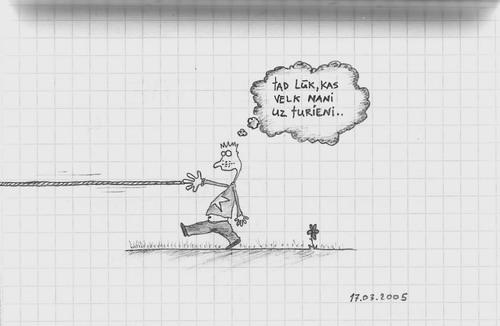 tAD LŪK, KAS
VELK MANI
UZ tURIENI..
17.03.2005